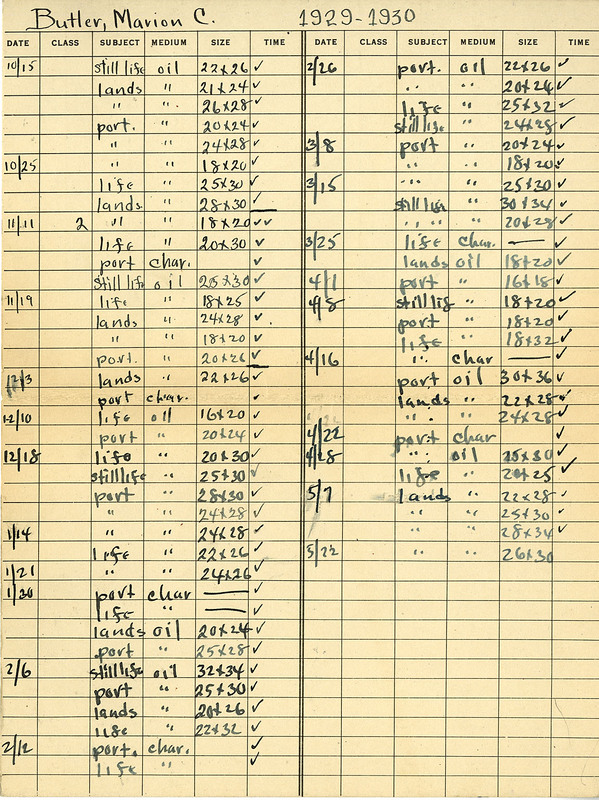 Butler, Marion C. 1929-1930
DATE CLASS SUBJECT MEDIUM SIZE TIME
10/15 still life oil 22x26 ✓
lands " 21x24 ✓
" " 26x28 ✓
port. " 20x24 ✓
" " 24x28 ✓
10/25 " " 18x20 ✓
life " 25x30 ✓
lands " 28x30 ✓
11/11 2 " " 18x20 ✓✓
life " 20x30 ✓
port char. ✓
still life oil 25x30 ✓
11/19 life " 18x25 ✓
lands " 24x28 ✓
" " 18x20 ✓
port. " 20x26 ✓
12/3 lands " 22x26 ✓
port char. ✓
12/10 life oil 16x20 ✓
port " 20x24 ✓
12/18 life " 20x30 ✓
still life " 25x30 ✓
port " 28x30 ✓
" " 24x28 ✓
1/14 " " 24x28 ✓
life " 22x26 ✓
1/21 " " 24x26 ✓
1/30 port char — ✓
life " — ✓
lands oil 20x24 ✓
port " 25x28 ✓
2/6 still life oil 32x34 ✓
port " 25x30 ✓
lands " 20x26 ✓
life " 22x32 ✓
2/12 port. char. ✓
life " ✓
DATE CLASS SUBJECT MEDIUM SIZE TIME
2/26 port. oil 22x26 ✓
" " 20x24 ✓
life " 25x32 ✓
still life " 24x28 ✓
3/8 port " 20x24 ✓
" " 18x20 ✓
3/15 " " 25x30 ✓
still life " 30x34 ✓
" " " 20x28 ✓
3/25 life char. — ✓
lands oil 18x20 ✓
4/1 port " 16x18 ✓
4/8 still life " 18x20 ✓
port " 18x20 ✓
life " 18x32 ✓
4/16 " char — ✓
port oil 30x36 ✓
lands " 22x28 ✓
" " 24x28 ✓
4/22 port char ✓
4/28 " oil 25x30 ✓
life " 20x25 ✓
5/7 lands " 22x28 ✓
" " 25x30 ✓
" " 28x34 ✓
5/22 " " 26x30